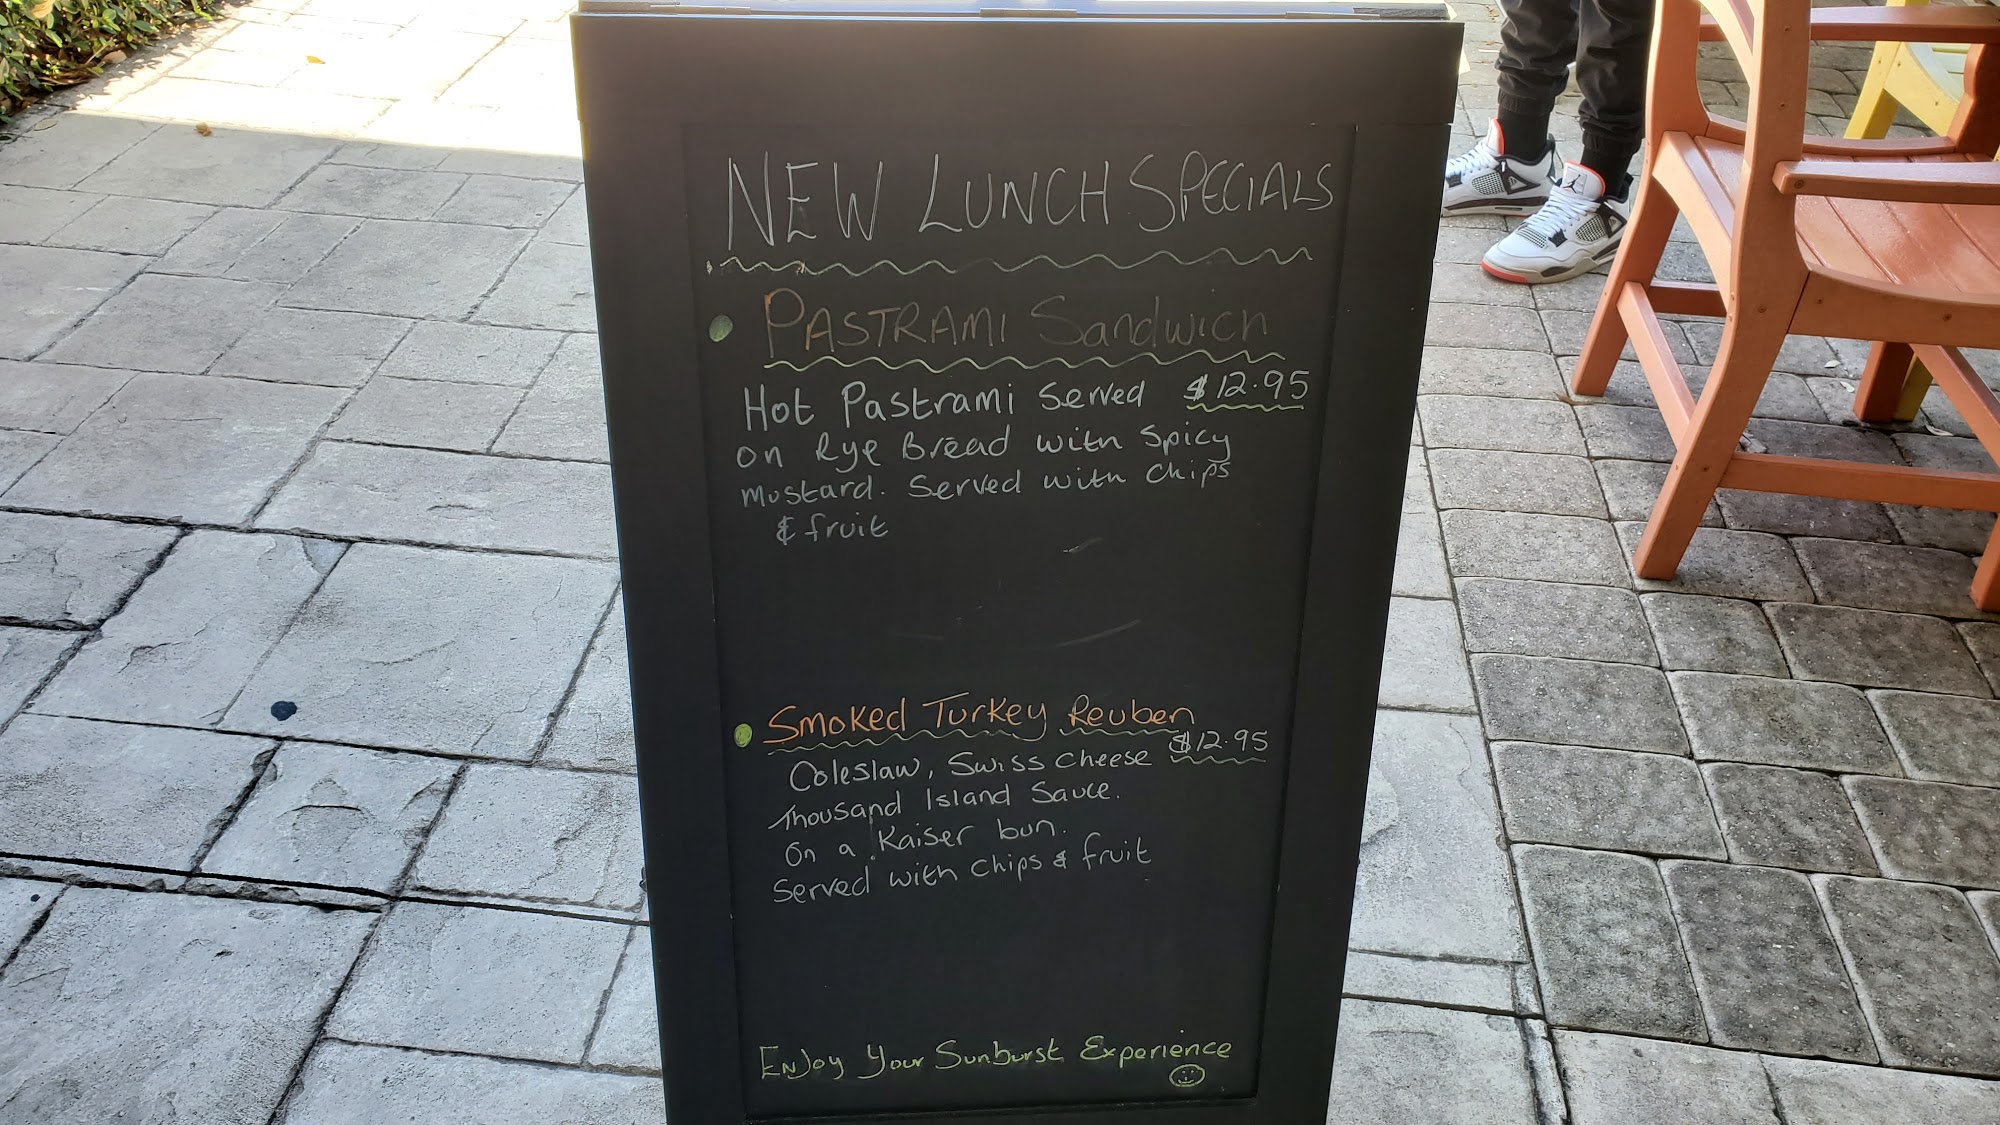 NEW LUNCH SPECIALS
PASTRAMI Sandwich
Hot Pastrami Served $12.95
on Rye Bread with Spicy
Mustard. Served with Chips
& fruit
Smoked Turkey Reuben
Coleslaw, Swiss Cheese $12.95
Thousand Island Sauce.
On a Kaiser bun.
Served with chips & fruit
Enjoy Your Sunburst Experience